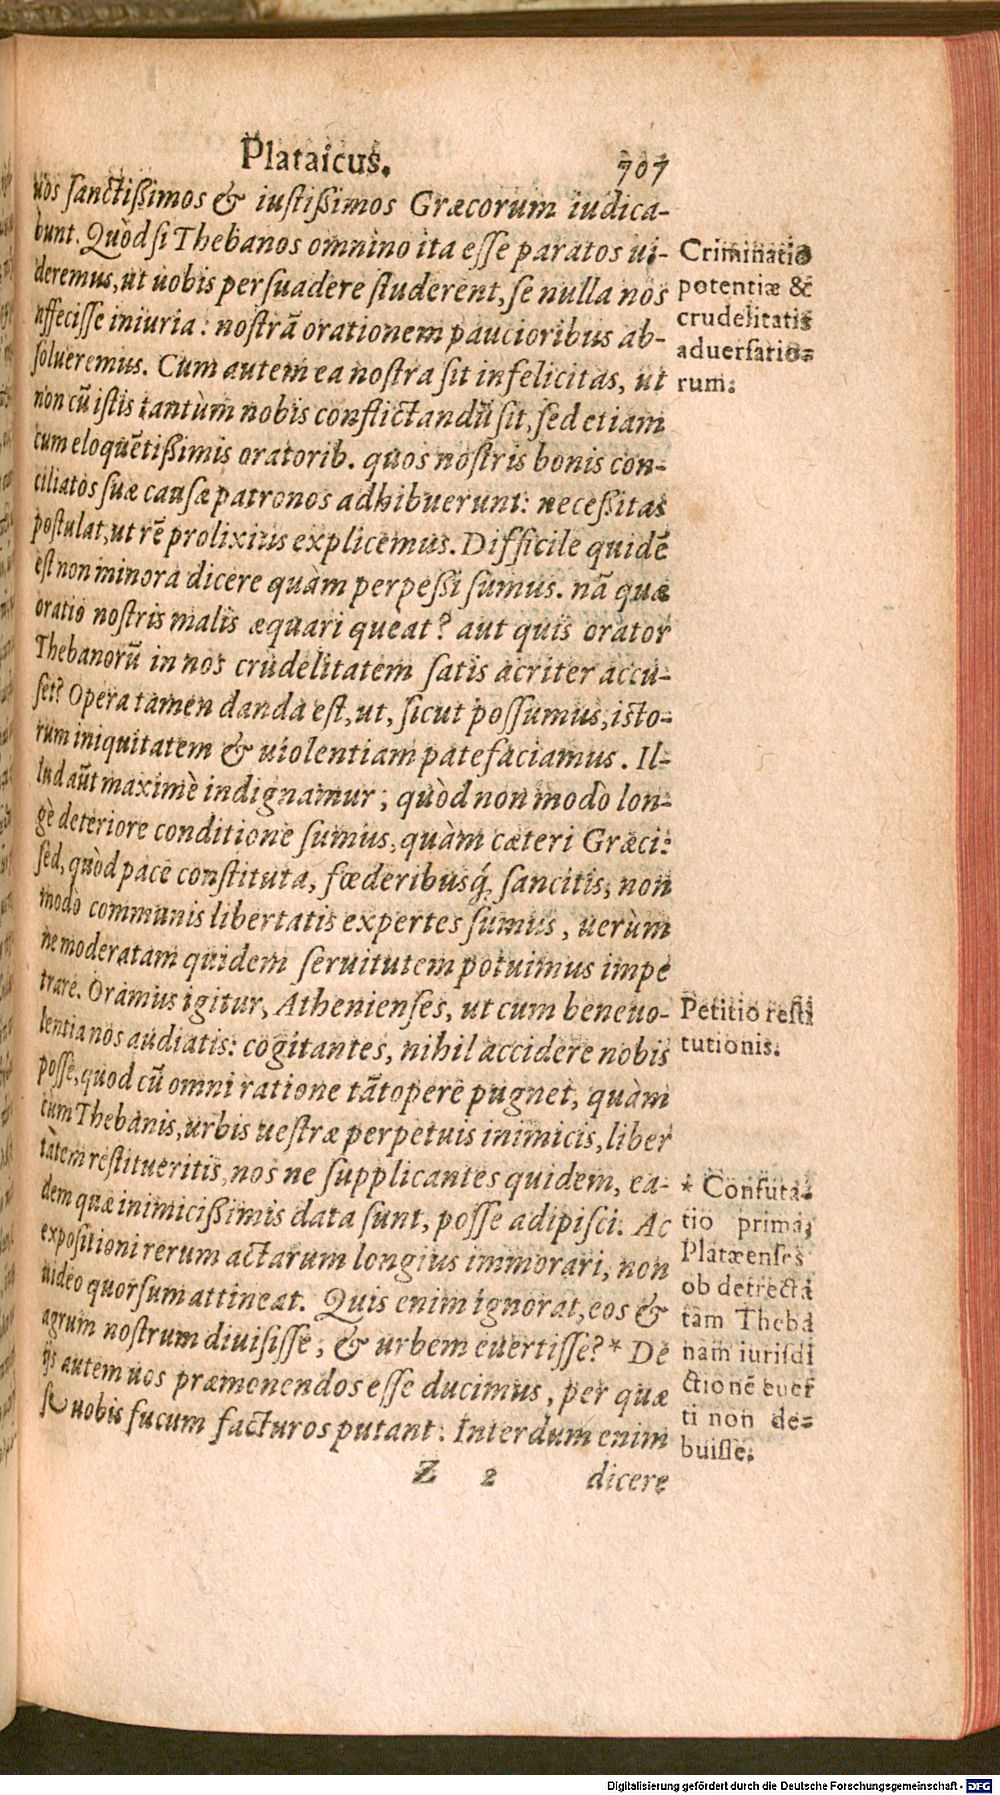 Plataicus. 707
uos sanctißimos & iustißimos Græcorum iudica-
bunt. Quòd si Thebanos omnino ita esse paratos ui-
deremus, ut uobis persuadere studerent, se nulla nos
affecisse iniuria: nostrã orationem paucioribus ab-
solueremus. Cum autem ea nostra sit infelicitas, ut
non cũ istis tantùm nobis conflictandũ sit, sed etiam
cum eloquẽtißimis oratorib. quos nostris bonis con-
ciliatos suæ causæ patronos adhibuerunt: neceßitas
postulat, ut rẽ prolixius explicemus. Difficile quidẽ
est non minora dicere quàm perpeßi sumus. nã quæ
oratio nostris malis æquari queat? aut quis orator
Thebanorũ in nos crudelitatem satis acriter accu-
set? Opera tamen danda est, ut, sicut possumus, isto-
rum iniquitatem & uiolentiam patefaciamus. Il-
lud aũt maximè indignamur; quòd non modo lon-
gè deteriore conditione sumus, quàm cæteri Græci:
sed, quòd pace constituta, fœderibusq́; sancitis, non
modo communis libertatis expertes sumus, uerùm
ne moderatam quidem seruitutem potuimus impe
trare. Oramus igitur, Athenienses, ut cum beneuo-
lentia nos audiatis: cogitantes, nihil accidere nobis
posse, quod cũ omni ratione tãtopere pugnet, quàm
cum Thebanis, urbis uestræ perpetuis inimicis, liber
tatem restitueritis, nos ne supplicantes quidem, ea-
dem quæ inimicißimis data sunt, posse adipisci. Ac
expositioni rerum actarum longius immorari, non
uideo quorsum attineat. Quis enim ignorat, eos &
agrum nostrum diuisisse; & urbem euertisse? * De
ijs autem uos præmonendos esse ducimus, per quæ
se uobis fucum facturos putant. Interdum enim
Z 2 dicere
Criminatio
potentiæ &
crudelitatis
aduersario-
rum.
Petitio resti
tutionis.
* Confuta-
tio prima,
Platæenses
ob detrecta
tam Theba
nam iurisdi
ctionẽ euer
ti non de-
buisse.
Digitalisierung gefördert durch die Deutsche Forschungsgemeinschaft - DFG